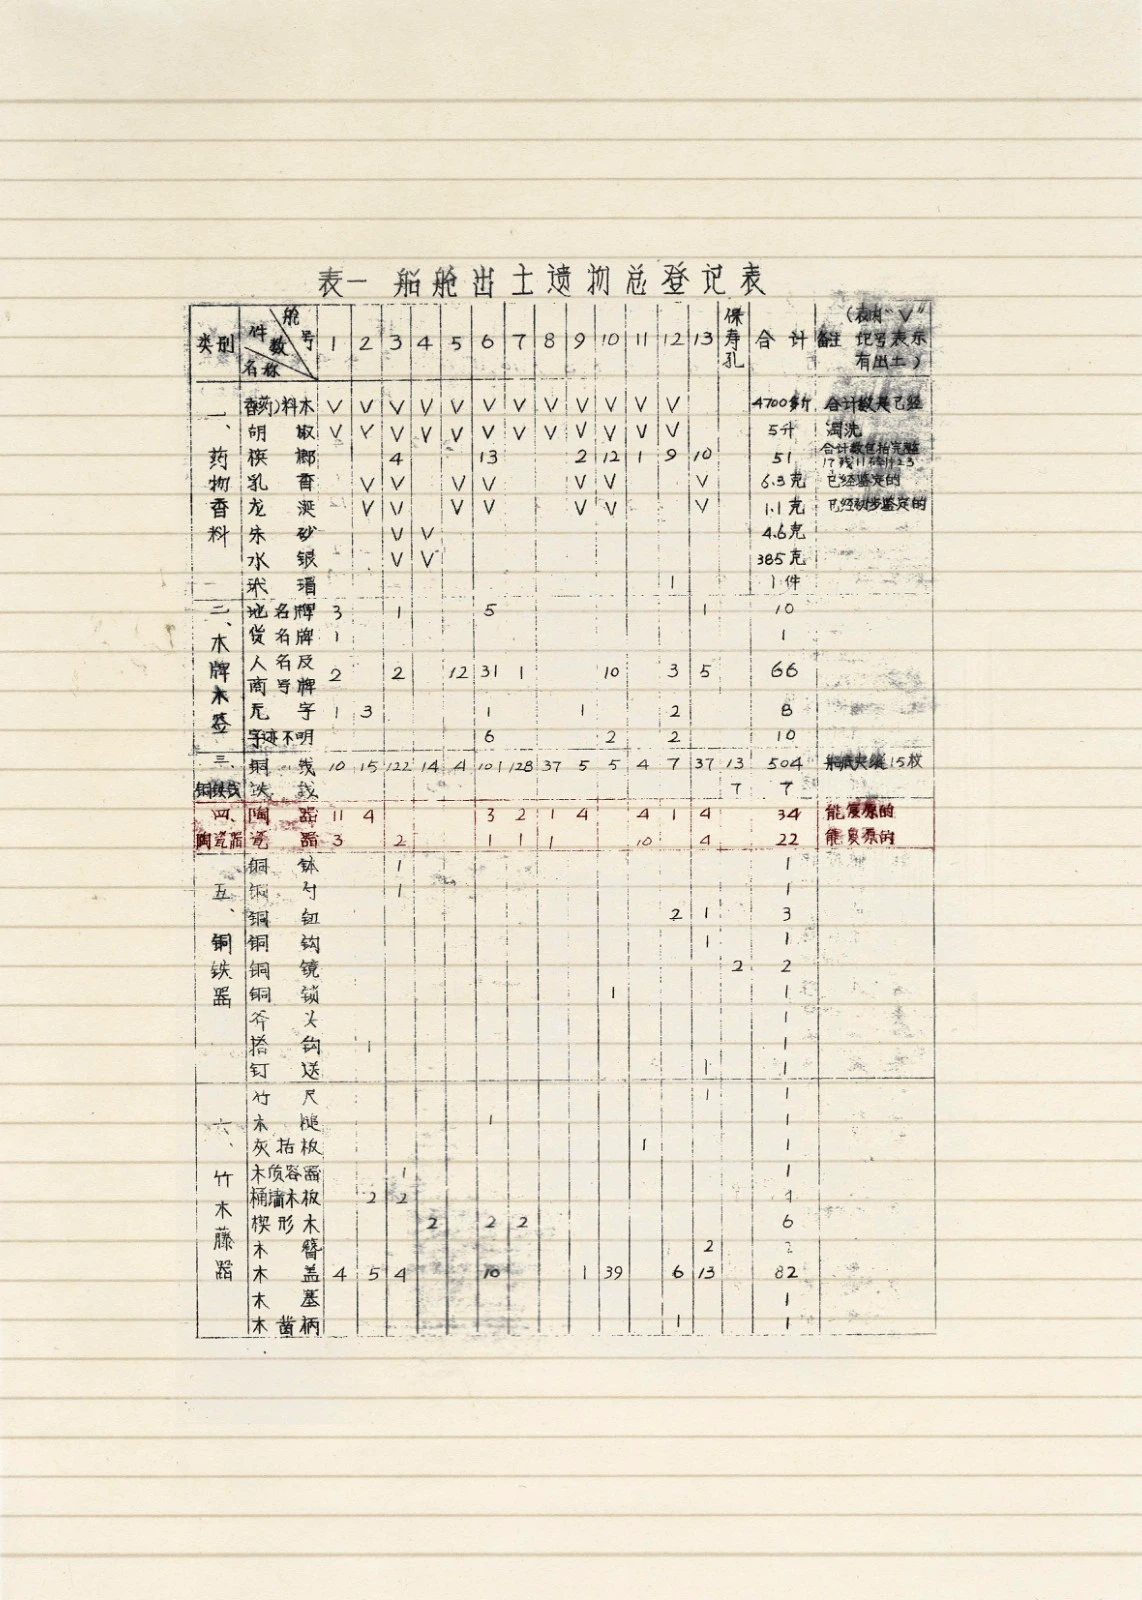 表一 船舱出土遗物总登记表
类别 件数 舱号 名称 1 2 3 4 5 6 7 8 9 10 11 12 13 保寿孔 合计 备注 (表内"V"记号表示有出土)
一、药物香料
香(药)料木 V V V V V V V V V V V V 4700多斤 合计数是已经
胡椒 V V V V V V V V V V V V 5升 淘洗
槟榔 4 13 2 12 1 9 10 51 合计数包括完整
乳香 V V V V V V V 6.3克 已经鉴定的
龙涎 V V V V V V V 1.1克 已经初步鉴定的
朱砂 V V 4.6克
水银 V V 385克
玳瑁 1 1件
二、木牌木签
地名牌 3 1 5 1 10
货名牌 1 1
人名及商号牌 2 2 12 31 1 10 3 5 66
无字 1 3 1 1 2 8
字迹不明 6 2 2 10
三、铜铁钱
铜钱 10 15 122 14 4 101 128 37 5 5 4 7 37 13 504 15枚
铁钱 7 7
四、陶瓷器
陶器 11 4 3 2 1 4 4 1 4 34 能复原的
瓷器 3 2 1 1 1 10 4 22 能复原的
五、铜铁器
铜钵 1 1
铜勺 1 1
铜钮 2 1 3
铜钩 1 1
铜镜 2 2
铜锁 1 1
斧头 1
搭钩 1 1
钉送 1 1
六、竹木藤器
竹尺 1 1
木槌 1 1
灰抬板 1 1
木质容器 1 1
桶墙木板 2 2 4
楔形木 2 2 2 6
木簪 2 2
木盖 4 5 4 10 1 39 6 13 82
木塞 1
木凿柄 1 1